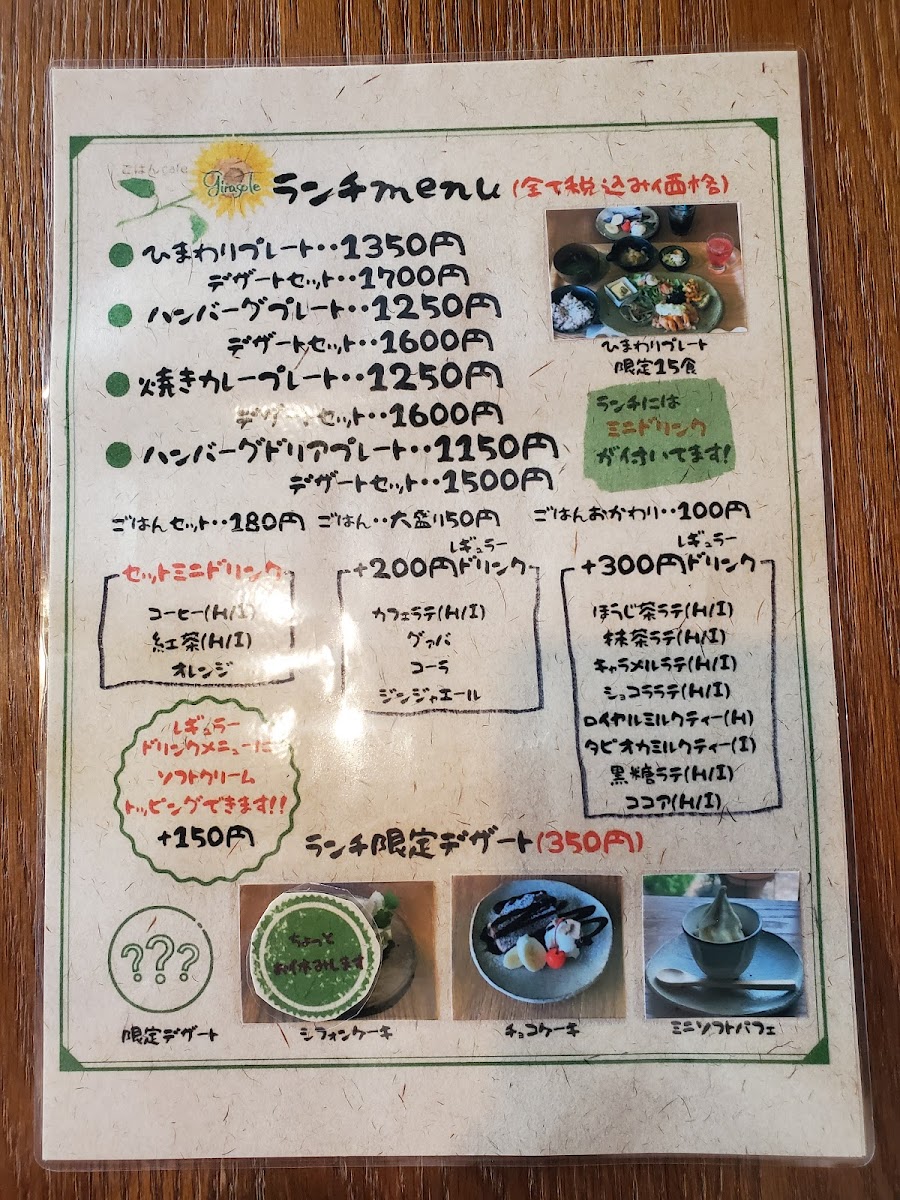 ごはんcafe
girasole
ランチmenu (全て税込み価格)
ひまわりプレート・・1350円
デザートセット・・1700円
ハンバーグプレート・・1250円
デザートセット・・1600円
焼きカレープレート・・1250円
デザートセット・・1600円
ハンバーグドリアプレート・・1150円
デザートセット・・1500円
ひまわりプレート
限定15食
ランチには
ミニドリンク
が付いてます!
ごはんセット・・180円 ごはん・・大盛り50円 ごはんおかわり・・100円
セットミニドリンク
コーヒー(H/I)
紅茶(H/I)
オレンジ
レギュラー
+200円ドリンク
カフェラテ(H/I)
グァバ
コーラ
ジンジャエール
レギュラー
+300円ドリンク
ほうじ茶ラテ(H/I)
抹茶ラテ(H/I)
キャラメルラテ(H/I)
ショコララテ(H/I)
ロイヤルミルクティー(H)
タピオカミルクティー(I)
黒糖ラテ(H/I)
ココア(H/I)
レギュラー
ドリンクメニューに
ソフトクリーム
トッピングできます!!
+150円
ランチ限定デザート(350円)
???
限定デザート
ちょっと
お休みします
シフォンケーキ
チョコケーキ
ミニソフトパフェ